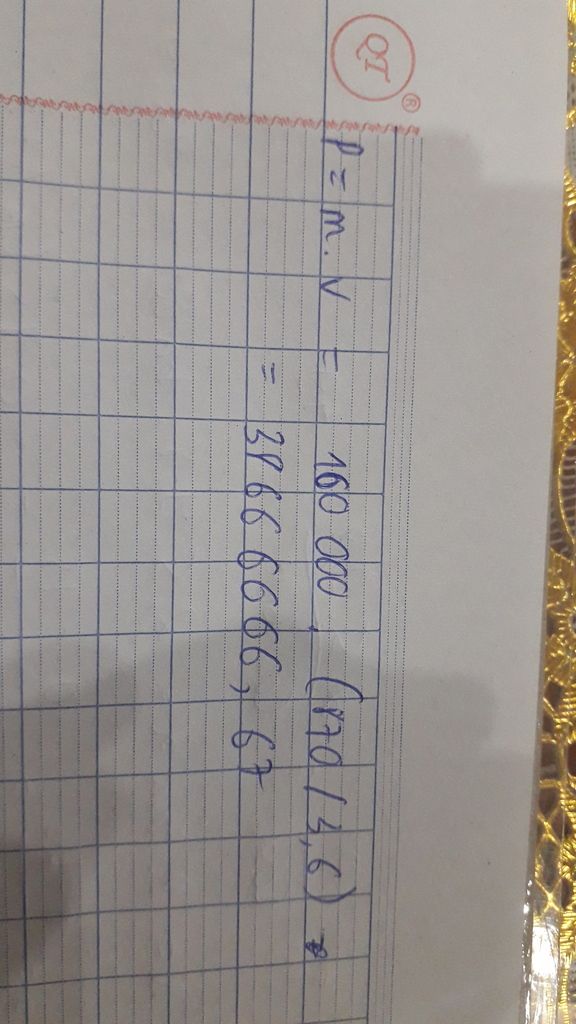 QT ®
p = m . v = 160 000 . (870 / 3,6)
= 38666666,67